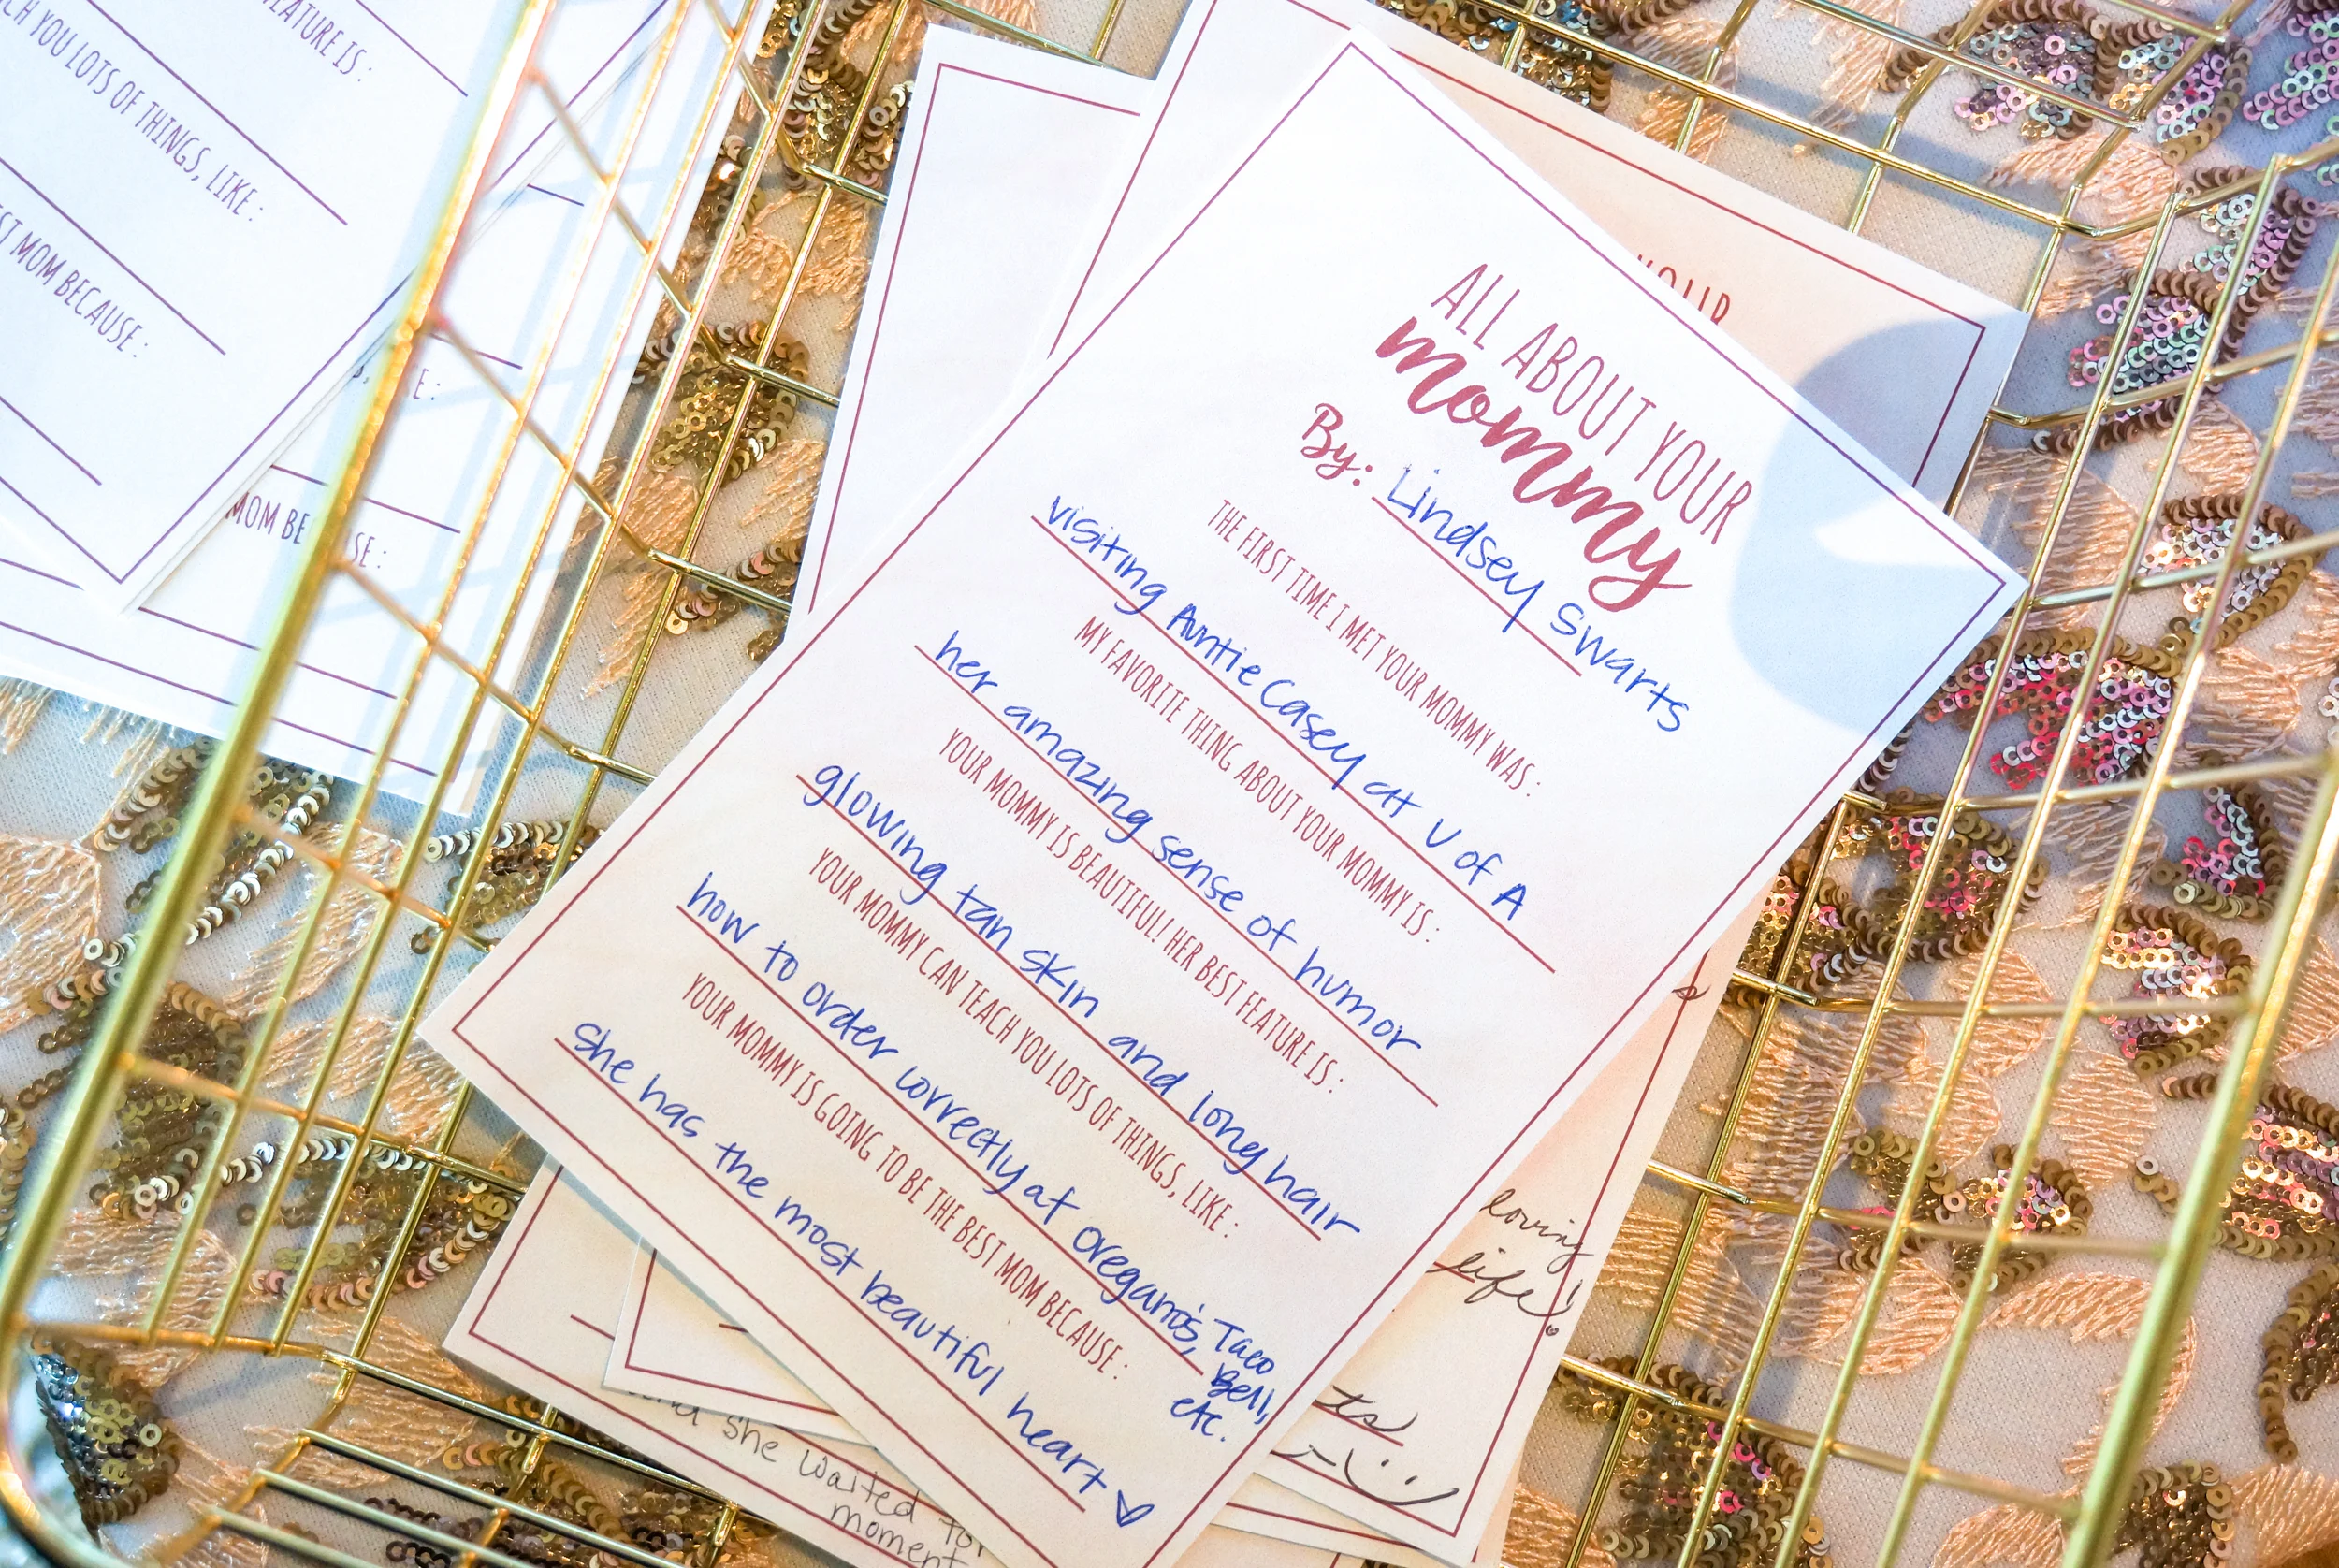 ALL ABOUT YOUR
mommy
By: Lindsey Swarts
THE FIRST TIME I MET YOUR MOMMY WAS:
visiting Auntie Casey at U of A
MY FAVORITE THING ABOUT YOUR MOMMY IS:
her amazing sense of humor
YOUR MOMMY IS BEAUTIFUL! HER BEST FEATURE IS:
glowing tan skin and long hair
YOUR MOMMY CAN TEACH YOU LOTS OF THINGS, LIKE:
how to order correctly at oregano's, Taco
Bell,
etc.
YOUR MOMMY IS GOING TO BE THE BEST MOM BECAUSE:
she has the most beautiful heart
YOUR
loving
life!
she waited for
moment
IS:
YOU LOTS OF THINGS, LIKE:
MOM BECAUSE:
MOM